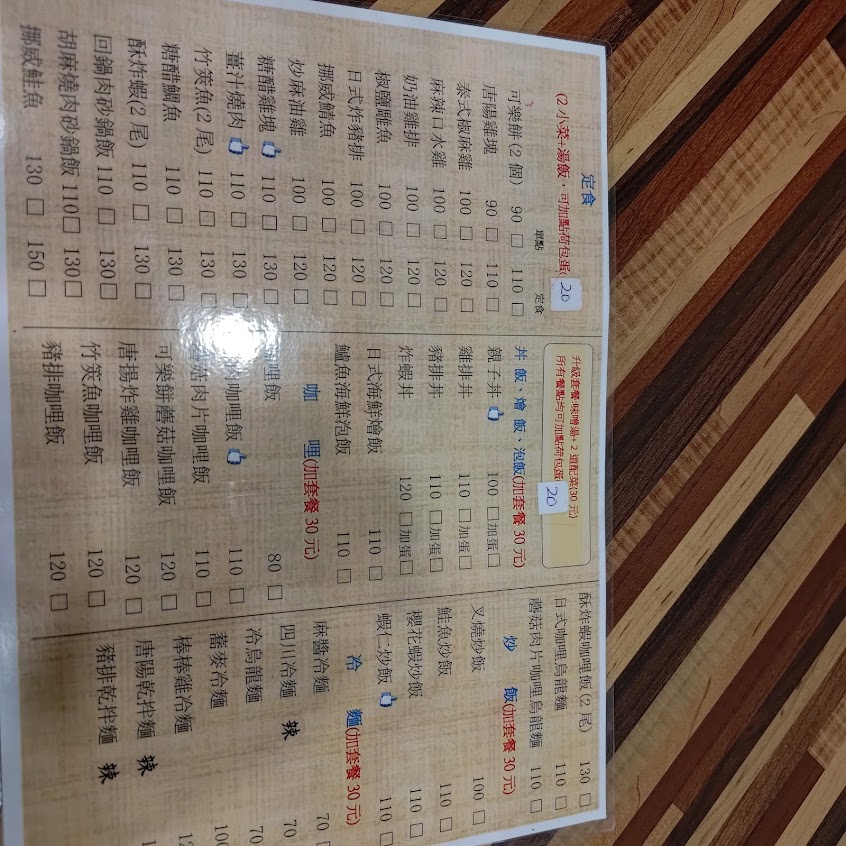 定食
(2 小菜+湯飯，可加點荷包蛋 20
單點 定食
可樂餅(2 個) 90 □ 110 □
唐陽雞塊 90 □ 110 □
泰式椒麻雞 100 □ 120 □
麻辣口水雞 100 □ 120 □
奶油雞排 100 □ 120 □
椒鹽雕魚 100 □ 120 □
日式炸豬排 100 □ 120 □
挪威鯖魚 100 □ 120 □
炒麻油雞 100 □ 120 □
糖醋雞塊 110 □ 130 □
薑汁燒肉 110 □ 130 □
竹筴魚(2 尾) 110 □ 130 □
糖醋鯛魚 110 □ 130 □
酥炸蝦(2 尾) 110 □ 130 □
回鍋肉砂鍋飯 110 □ 130□
胡麻燒肉砂鍋飯 110□ 130□
挪威鮭魚 130 □ 150 □
升級套餐:味噌湯+ 2 道配菜(30 元)
所有餐點均可加點荷包蛋 20
丼 飯、燴 飯、泡飯(加套餐 30 元)
親子丼 100 □加蛋□
雞排丼 110 □加蛋□
豬排丼 110 □加蛋□
炸蝦丼 120 □加蛋□
日式海鮮燴飯 110 □
鱸魚海鮮泡飯 110 □
咖 哩(加套餐 30 元)
哩飯 80 □
肉咖哩飯 110 □
菇肉片咖哩飯 110 □
可樂餅蘑菇咖哩飯 120 □
唐揚炸雞咖哩飯 120 □
竹筴魚咖哩飯 120 □
豬排咖哩飯 120 □
酥炸蝦咖哩飯(2 尾) 130 □
日式咖哩烏龍麵 110 □
蘑菇肉片咖哩烏龍麵 110 □
炒 飯(加套餐 30 元)
叉燒炒飯 100 □
鮭魚炒飯 110 □
櫻花蝦炒飯 110 □
蝦仁炒飯 110 □
冷 麵(加套餐 30 元)
麻醬冷麵 70 □
四川冷麵 辣 70
冷烏龍麵 70
蕎麥冷麵 100
棒棒雞冷麵
唐陽乾拌麵 辣
豬排乾拌麵 辣